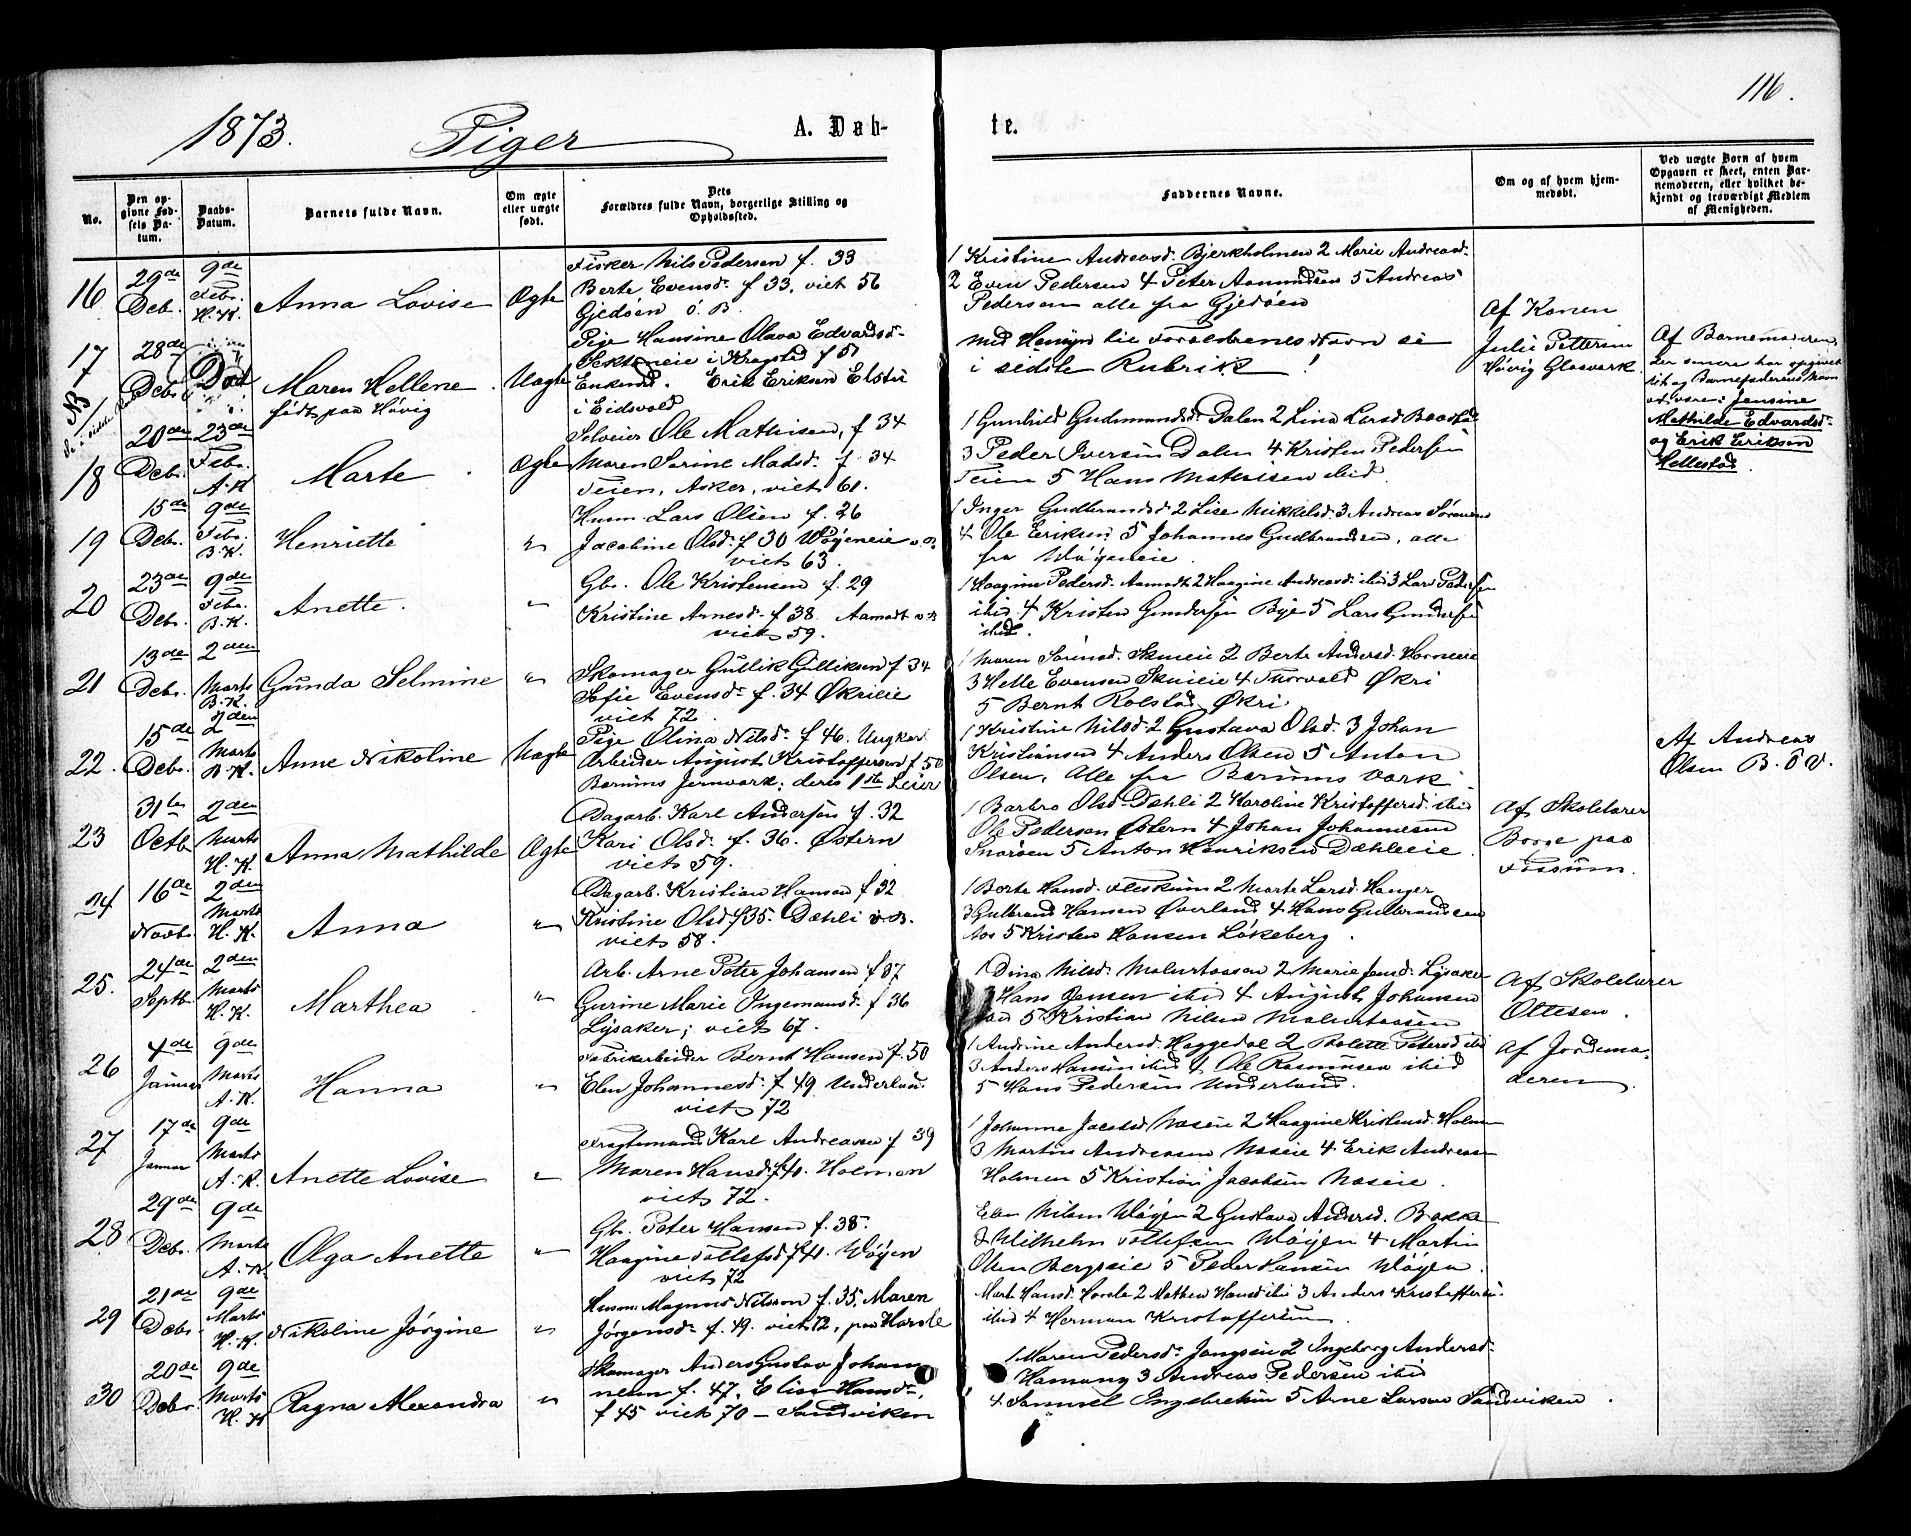 116.
1873. Piger A. Døb-
te.
No.
Den op-
givne Fød-
sels Da-
tum.
Daabs-
Datum.
Barnets fulde Navn.
Om ægte
eller uægte
født.
Dets
Forældres fulde Navn, borgerlige Stilling og
Opholdssted.
Faddernes Navne.
Om og af hvem hjem-
medøbt.
Ved uægte Børn af hvem
Opgaven er skeet, enten Bar-
nemoderen, eller hvilket be-
kjendt og troværdigt Medlem
af Menigheden.
16 29de Deb. 9de Febr. H.K. Anna Lovise Ægte
Fisker Nils Pedersen f. 33
Berte Evensd. f 33, viet 56
Gjedøen
1 Kristine Andreasd. Bjerkholmen 2 Marie Andreasd.
2 Even Pedersen 4 Peter Aamundsen 5 Andreas
Pedersen alle fra Gjedøen
17 28de Debr. Død Maren Hellene Uægte
født paa Høvig
Pige Hansine Olava Edvardsd.
i Kragstad f 51
Enkemd. Erik Eriksen
i Eidsvold
med Hensyn til Forældrenes Navn se
i sidste Rubrik!
Af Konen
Julie Pettersen
Høvig Glasværk.
Af Barnemoderen,
der senere har opgivet
sit og Barnefaderens Navn
at være: Jensine
Mathilde Edvardsd.
og Erik Eriksen
Hellestad.
NB
18 20de Debr. 23de Febr. A.K Marte Ægte
Selveier Ole Mathisen, f 34
Maren Serine Madsd. f. 34
Teien, Asker, viet 61.
1 Gunhild Gudmundsd. Dalen 2 Lina Larsd
3 Peder Iversen Dalen 4 Kristen Pedersen
Teien 5 Hans Mathisen ibid.
19 15de Debr. 9de Febr. B.K. Henriette "
Husm. Lars Olsen f. 26
Jacobine Olsd. f 30 Wøyeneie
viet 63.
1 Inger Gudbrandsd 2 Lise Mikkelsd. 3 Andreas Sørensen
4 Ole Eriksen 5 Johannes Gudbrandsen, alle
fra Wøyeneie
20 23de Debr. 9de Febr. B.K. Anette. "
Gbr. Ole Kristensen f. 29
Kristine Arnesd. f 38 Aamodt v. B
viet 59.
1 Haagine Pedersd. Aamodt 2 Haagine Andreasd. ibid 3 Lars Pedersen
ibid. 4 Kristen Gundersen Bye 5 Lars Gundersen
ibid.
21 13de Debr. 2den Marts B.K. Gunda Selmine "
Skomager Gullik Gulliksen f 34
Sofie Evensd. f. 34 Økrieie
viet 72.
1 Maren Sørensd. Skuieie 2 Berte Andersd. Horneeie
3 Helle Evensen Skuieie 4 Thorvald Økri
5 Bernt Rolstad Økri
22. 15de Debr. 2den Marts B.K. Anne Nikoline Uægte
Pige Olina Nilsd. f 46. Ungkar
Arbeider August Kristoffersen f 50
Bærums Jernværk; deres 1ste Leier
1 Kristine Nilsd. 2 Gustava Olsd. 3 Johan
Kristiansen 4 Anders Olsen 5 Anton
Olsen, Alle fra Bærums Værk
Af Andreas
Olsen B. V.
23 31te Octb 2den Marts H.K. Anna Mathilde Ægte
Dagarb. Karl Andersen f. 32
Kari Olsd. f. 36. Østern
viet 59.
1 Barbro Olsd. Dæhli 2 Karoline Kristoffersd. ibid
Ole Pedersen Østern 4 Johan Johannesen
Snarøen 5 Anton Henriksen Dæhlieie
Af Skolelærer
Borge paa
Fossum.
24 16de Novb. 2den Marts H.K. Anna "
Dagarb. Kristian Hansen f 32
Kristine Olsd f35. Dæhli v. B.
viet 58.
1 Berte Hansd. Fleskum 2 Marte Larsd. Hauger
3 Gulbrand Hansen Øverland 4 Hans Gulbrandsen
5 Kristen Hansen Løkeberg.
25. 24de Septb. 2den Marts H.K. Marthea "
Arb. Arne Peter Johansen f 37
Gurine Marie Ingemansd. f 36
Lysaker; viet 67.
1 Dina Nilsd. Malurtaasen 2 Marie Jensd. Lysaker
Hans Jensen ibid 4 August Johansen
5 Kristian Nilsen Malurtaasen
Af Skolelærer
Ottesen.
26 4de Januar 9de Marts A.K. Hanna "
Fabrikarbeider Bernt Hansen f. 50
Elen Johannesd. f 49 Underlan.
viet 72
1 Andrine Andersd. Haggedal 2 Bolette Petersd ibid
3 Anders Hansen ibid 4 Ole Rasmussen ibid
5 Hans Pedersen Underland.
Af Jordemo-
deren
27 17de Januar 9de Marts A.K. Anette Lovise "
Fragtemand Karl Andreassen f 39
Maren Hansd. f41. Holmen
viet 72.
1 Johanne Jacobsd Næseie 2 Haagine Kristensd. Holmen
3 Martin Andreasen Næseie 4 Erik Andreasen
Holmen 5 Kristian Jacobsen Næseie.
28 29de Debr. 9de Marts A.K. Olga Anette "
Gbr. Peter Hansen f. 38.
Haagine Tollefsd f41. Wøyen
viet 72
Elen Nilsen Wøyen 2 Gustava Andersd. Bakke
3 Wilhelm Tollefsen Wøyen 4 Martin
Olsen Bergseie 5 Peder Hansen Wøyen.
29 21de Debr. 9de Marts H.K. Nikoline Jørgine "
Husm. Magnus Nilsson f. 35. Maren
Jørgensd. f. 49. viet 72, paa Harsle
Marte Hansd. Horsle 2 Mathea Hansd ibi 3 Anders Kristoffersen
ibid 4 Herman Kristoffersen
30 20de Debr. 9de Marts H.K Ragna Alexandra "
Skomager Anders Gustav Johan-
nesen f. 47, Elise Hansd.
f 45 viet 70 - Sandviken
1 Maren Pedersd. Jongseie 2 Ingeborg Andersd.
Hamang 3 Andreas Pedersen ibid
4 Samuel Ingebretsen 5 Arne Larsen Sandviken.